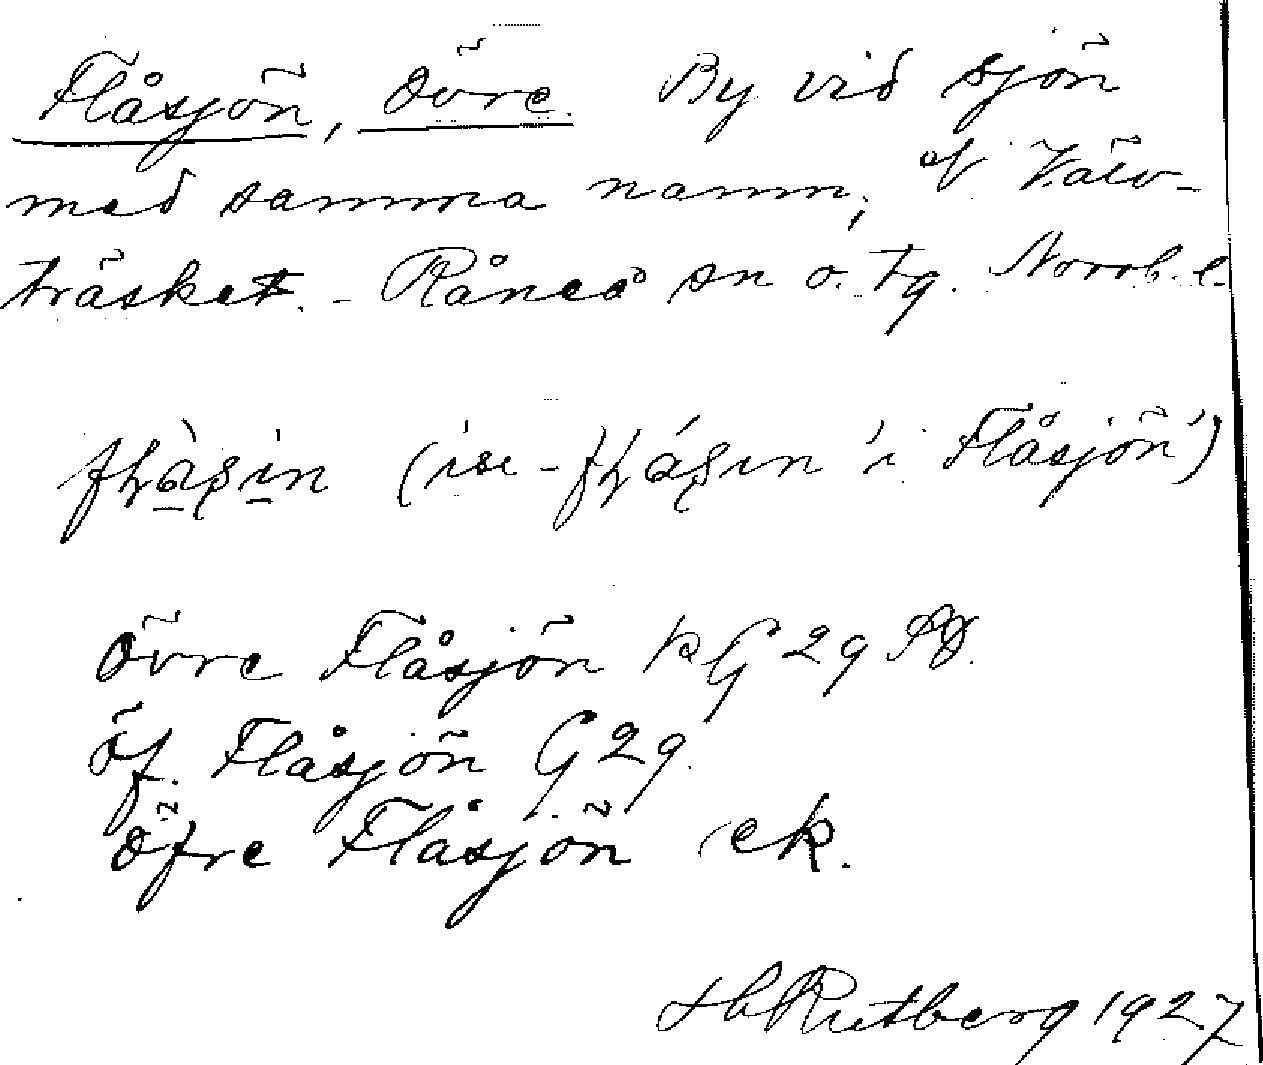 Flåsjön, Övre. By vid sjön
med samma namn, V.
träsket. - Råneå sn o. tg. Norrb. l.
(ise- 'i Flåsjön')
Övre Flåsjön kG 29
öf. Flåsjön G 29.
Öfre Flåsjön ek.
H Rutberg 1927